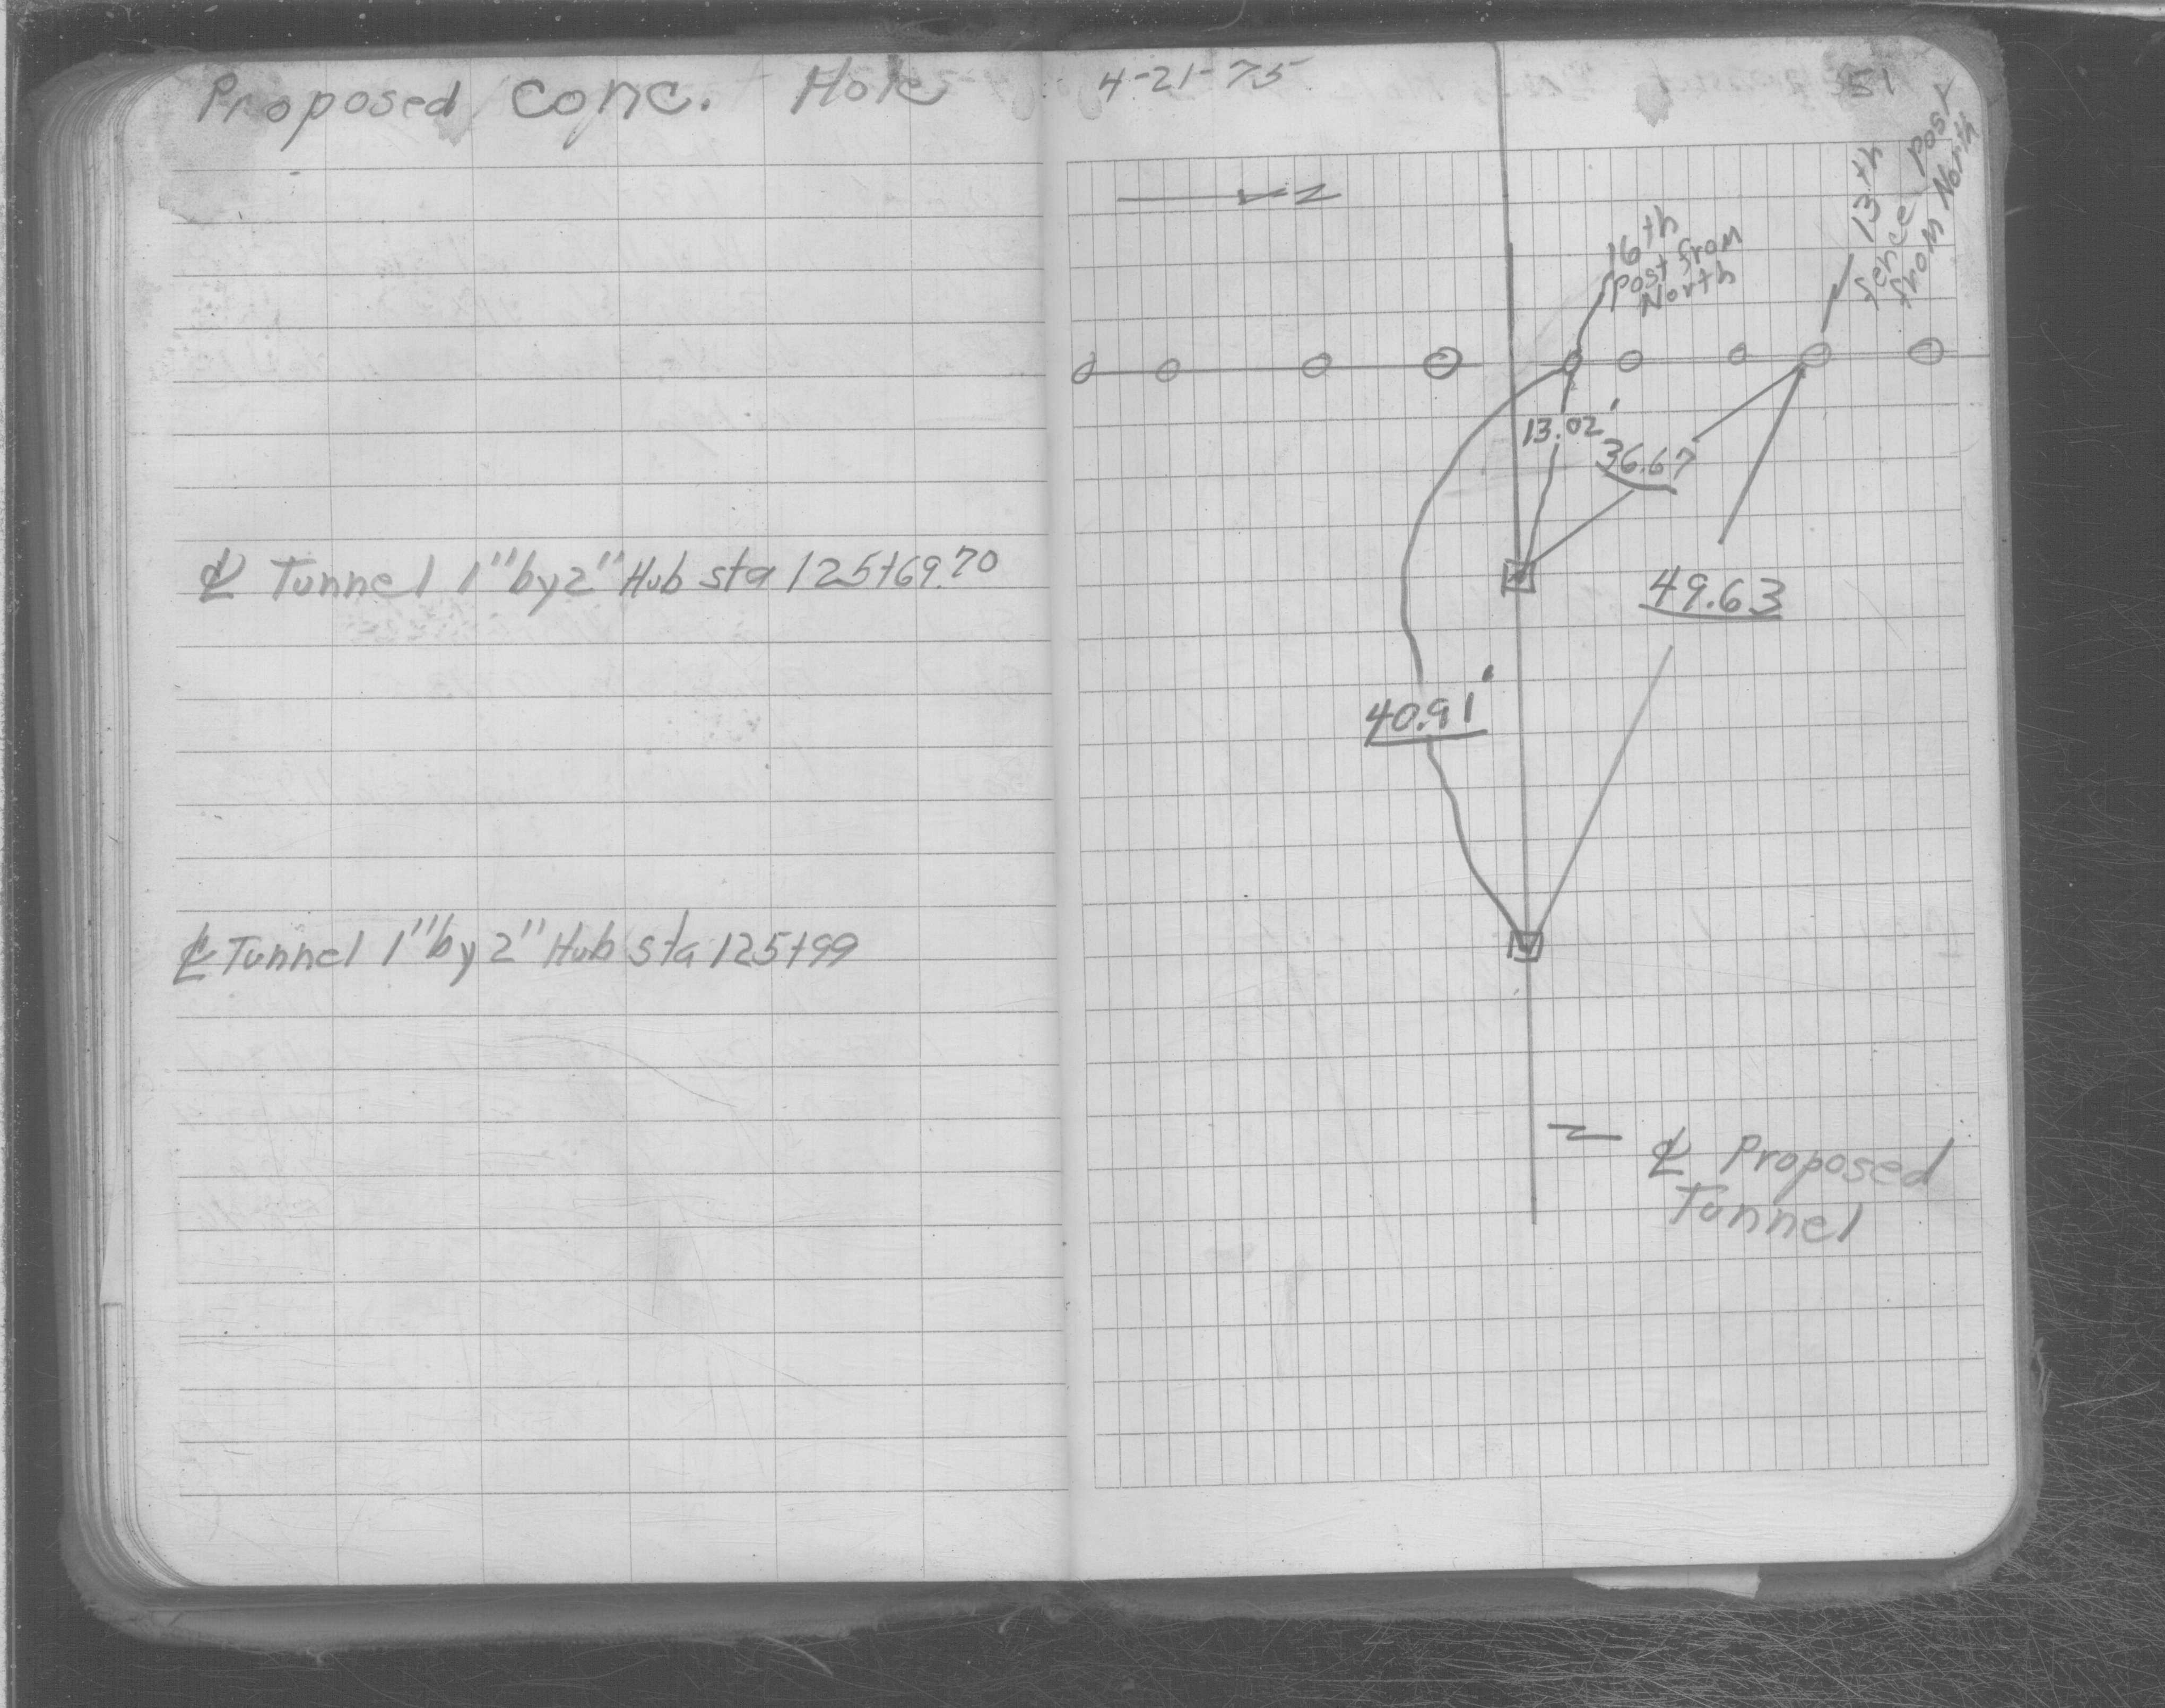 Proposed Conc. Hole
℄ Tunnel 1" by 2" Hub sta 125+69.70
℄ Tunnel 1" by 2" Hub sta 125+99
4-21-75
51
N
16th
post from
North
13th
fence post
from North
13.02'
36.67
49.63
40.91'
℄ Proposed
Tunnel